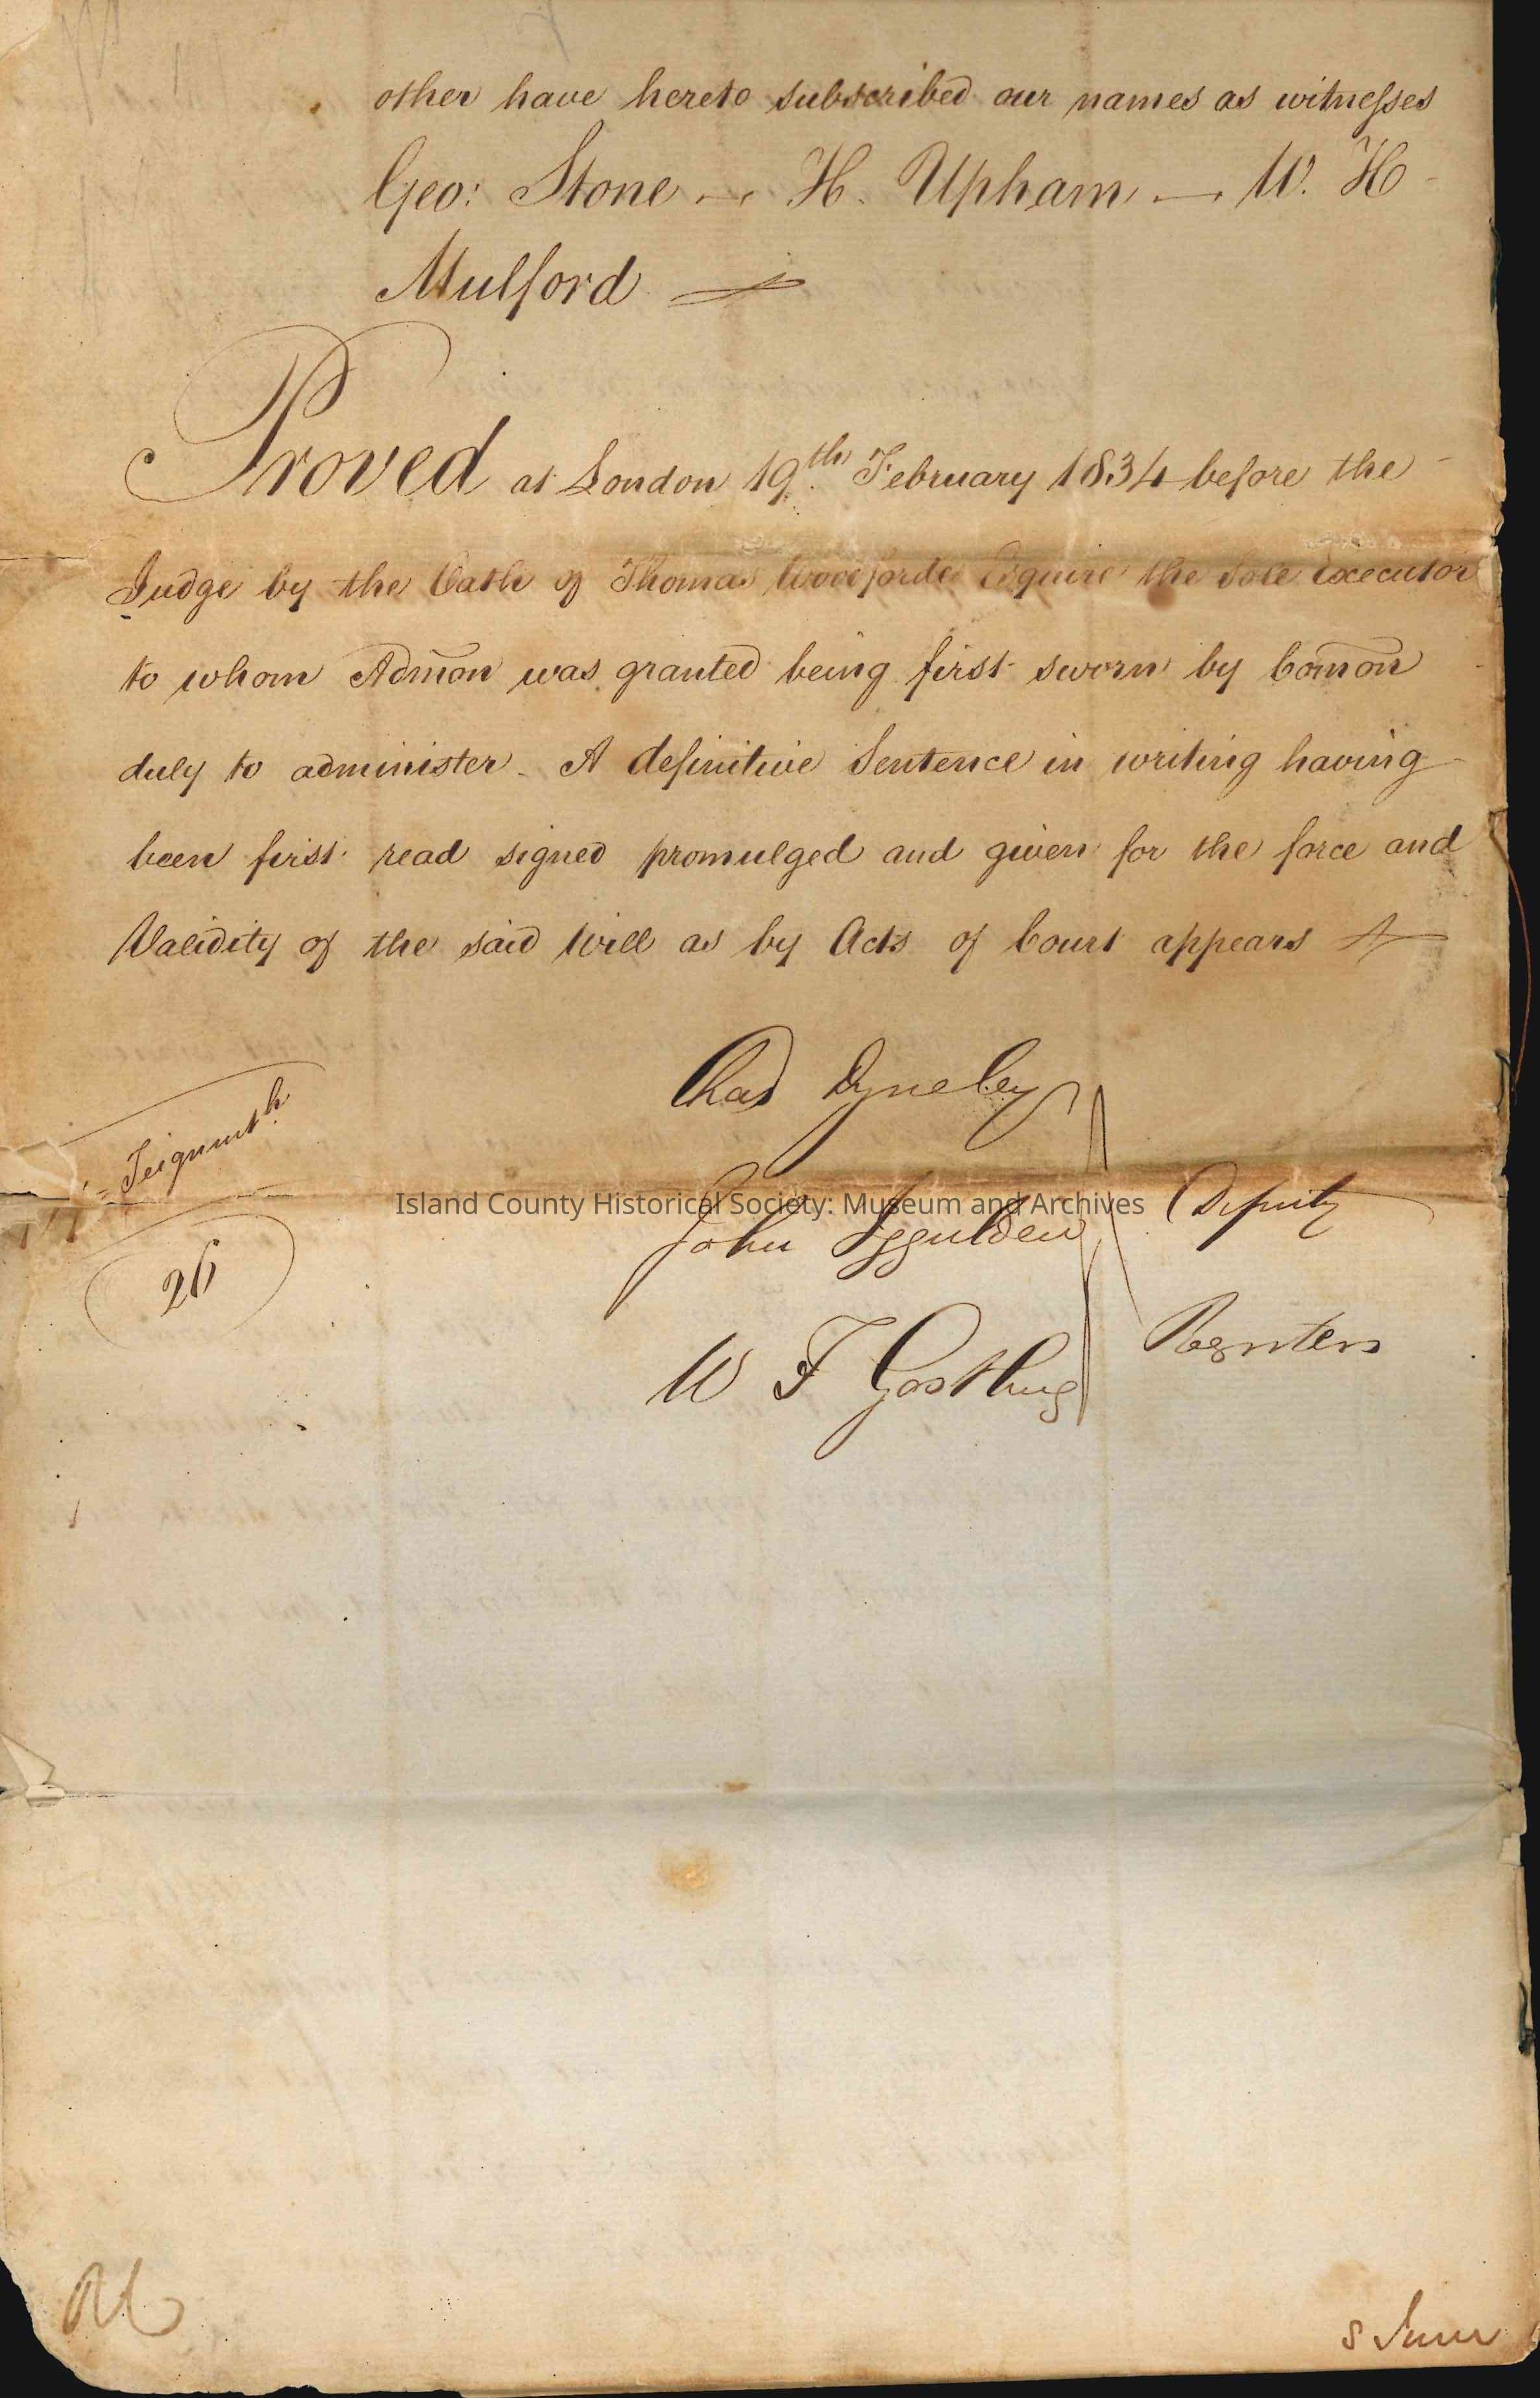 other have hereto subscribed our names as witnesses
Geo: Stone — H. Upham — W. H
Mulford
Proved at London 19th February 1834 before the
Judge by the Oath of Thomas Woodforde Esquire the Sole Executor
to whom Admon was granted being first sworn by Comon
duly to administer. A definitive Sentence in writing having
been first read signed promulged and given for the force and
Validity of the said Will as by Acts of Court appears
Chas Dyneley
Teignmth
Island County Historical Society: Museum and Archives
John Iggulden
Deputy
26
W F Gostling
Registers